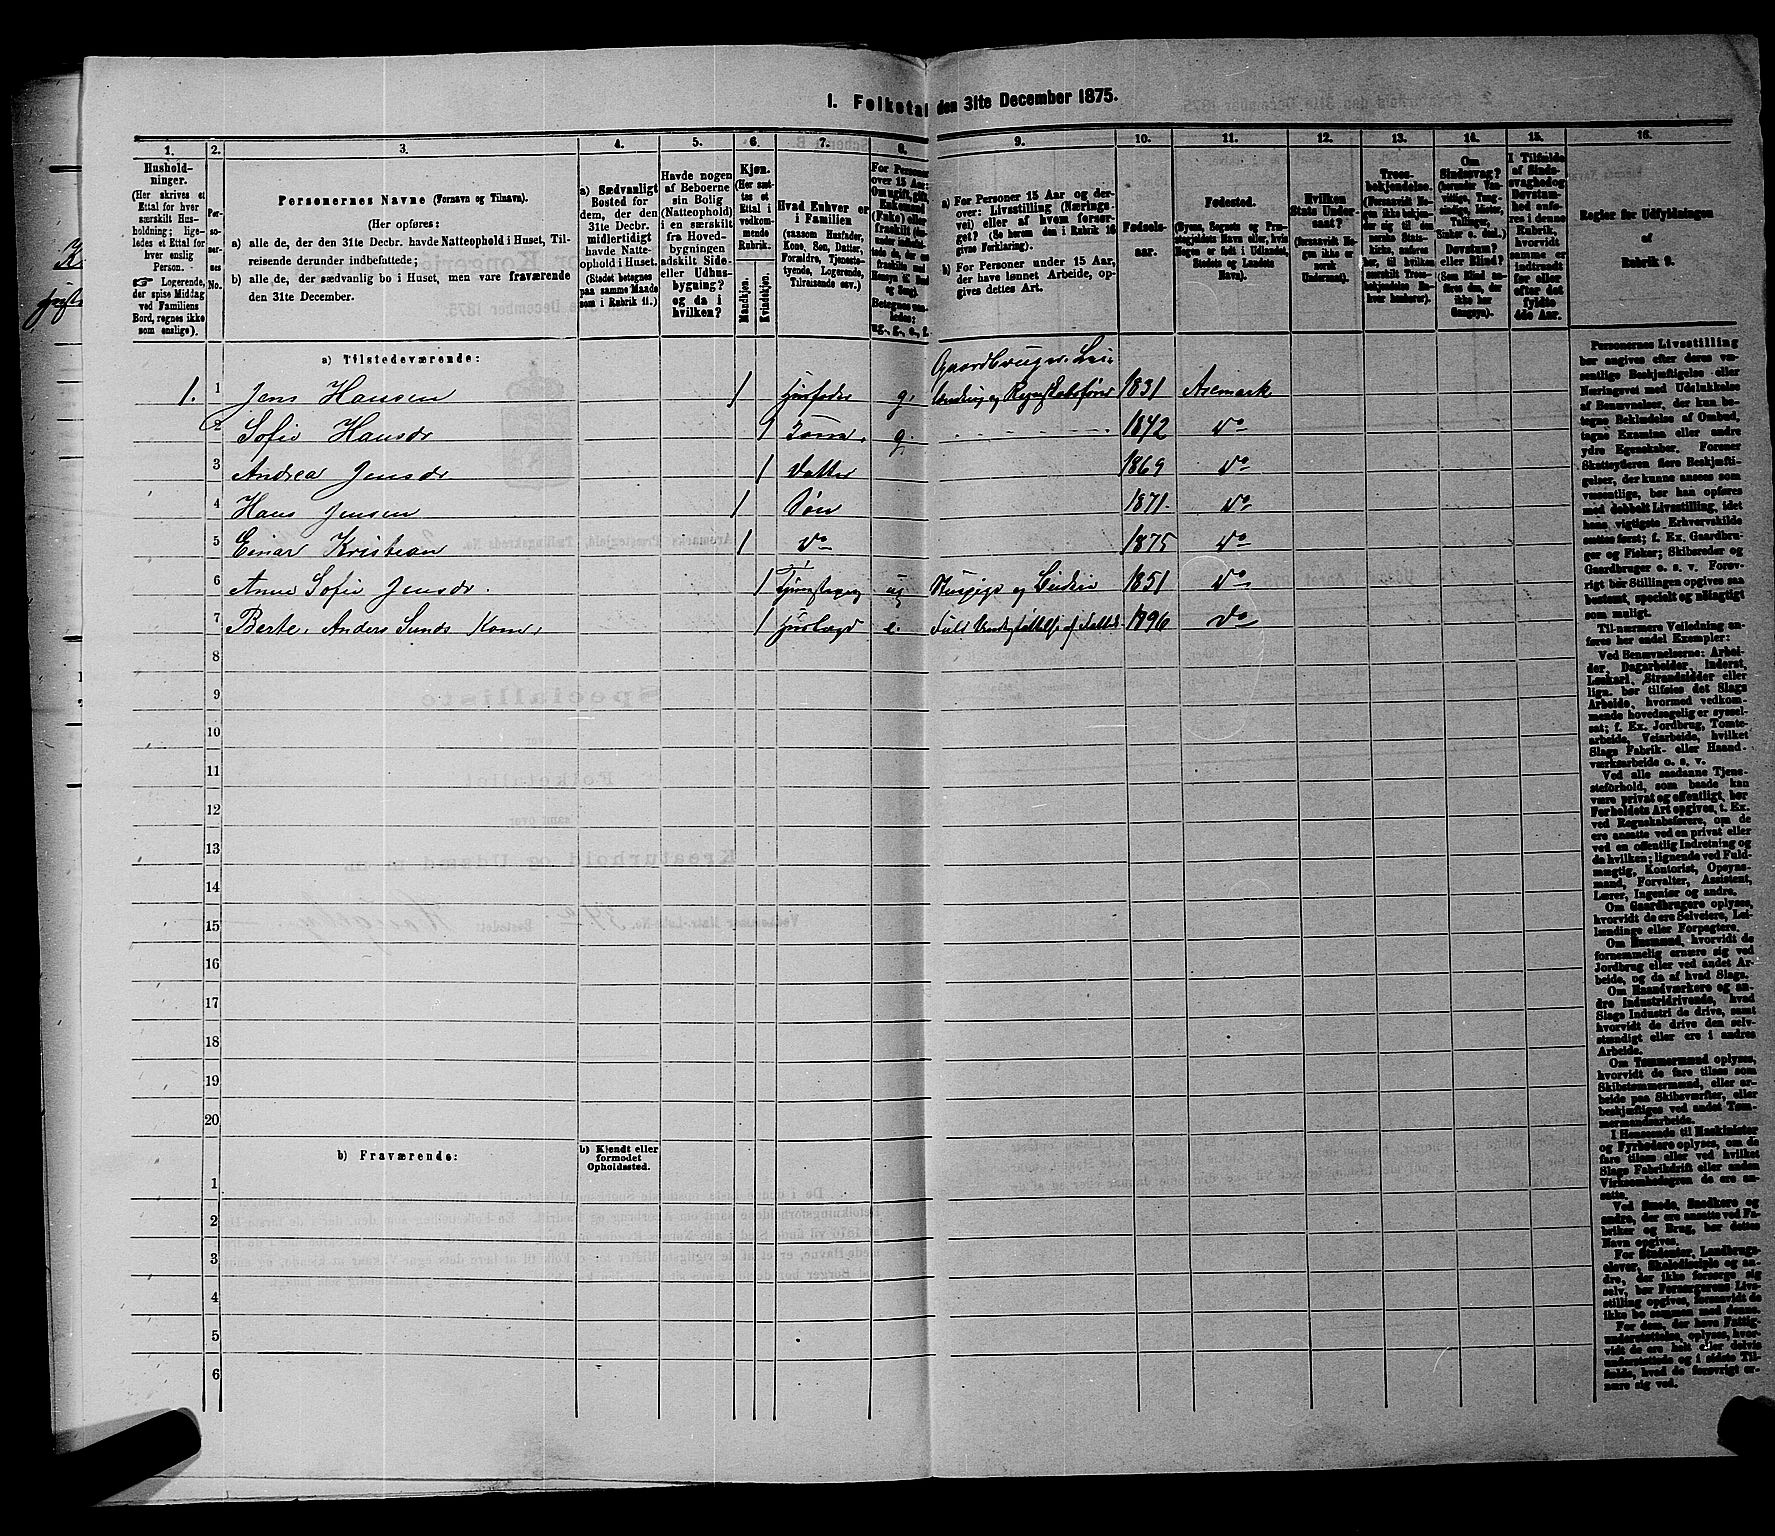 1. Folketal den 31te December 1875.
1. 2. 3. 4. 5. 6. 7. 8. 9. 10. 11. 12. 13. 14. 15. 16.
Hushold-
ninger.
(Her skrives et
Ettal for hver
særskilt Hus-
holdning; lige-
ledes et Ettal for
hver enslig
Person.
☞ Logerende,
der spise Middag
ved Familiens
Bord, regnes ikke
som enslige).
Per-
so-
ner-
nes
No.
Personernes Navne (Fornavn og Tilnavn).
(Her opføres:
a) alle de, der den 31te Decbr. havde Natteophold i Huset, Til-
reisende derunder indbefattede;
b) alle de, der sædvanlig bo i Huset, men vare fraværende
den 31te December.
a) Sædvanligt
Bosted for
dem, der den
31te Decbr.
midlertidigt
havde Natte-
ophold i Huset.
(Stedet betegnes
paa samme Maade
som i Rubrik 11.)
Havde nogen
af Beboerne
sin Bolig
(Natteophold)
i en særskilt
fra Hoved-
bygningen
adskilt Side-
eller Udhus-
bygning?
og da i
hvilken?
Kjøn.
(Her sæt-
tes et
Ettal i
vedkom-
mende
Rubrik.)
Mandkjøn.
Kvindekjøn.
Hvad Enhver er
i Familien
(saasom Husfader,
Kone, Søn, Datter,
Forældre, Tjeneste-
tyende, Logerende,
Tilreisende osv.)
For Personer
over 15 Aar:
Om ugift, gift,
Enkemand
(Enke) eller
fraskilt
Betegnes saa-
ledes:
ug., g., e., f.
a) For Personer 15 Aar og der-
over: Livsstilling (Nærings-
vei) eller af hvem forsør-
get? (Se herom den i Rubrik 16
givne Forklaring).
b) For Personer under 15 Aar,
der have lønnet Arbeide, op-
gives dettes Art.
Fødsels-
aar.
Fødested.
(Byens, Sognets og Præ-
stegjeldets Navn eller, hvis
Nogen er født i Udlandet,
Stedets og Landets
Navn).
Hvilken
Stats Under-
saat?
(forsaavidt No-
gen ikke er
norsk
Undersaat).
Troes-
bekjendelse.
(Forsaavidt No-
gen ikke bekjen-
der sig til den
norske Stats-
kirke, bør an-
føres, til hvilken
særskilt Troes-
bekjendelse En-
hver henhører).
Om
Sindssvag?
Døvstum?
eller Blind?
I Tilfælde
af Sinds-
svaghed og
Døvstum-
hed anfø-
res i denne
Rubrik,
hvorvidt
samme er
indtraadt
før eller
efter det
fyldte
4de Aar.
Regler for Udfyldningen
af
Rubrik 9.
a) Tilstedeværende:
Gaardbruger, Lei-
1. 1 Jens Hansen 1 Husfader g. lænding og Regnskabsfører 1831 Aremark
2 Sofie Hansdr 1 Kone, g. 1842 Do
3 Andrea Jensdr 1 Datter 1869 Do
4 Hans Jensen 1 Søn 1871. Do
5 Einar Kristian 1 Do 1875 Do
6 Anne Sofie Jensdr. 1 ug 1851 Do
7 Berte, Anders Sunds Kone, 1 e. 1796 Do
8
9
10
11
12
13
14
15
16
17
18
19
20
b) Fraværende:
b) Kjendt eller
formodet
Opholdssted.
1
2
3
4
5
6
Personernes Livsstilling
bør angives efter deres væ-
sentlige Beskjæftigelse eller
Næringsvei med Udelukkelse
af Benævnelser, der kun be-
tegne Beklædelse af Ombud,
tagne Examina eller andre
ydre Egenskaber. Forener
Skatteyderen flere Beskjæfti-
gelser, der kunne ansees som
væsentlige, bør han opføres
med dobbelt Livsstilling, idet
hans vigtigste Erhvervskilde
sættes først; f. Ex. Gaardbru-
ger og Fisker; Skibsreder og
Gaardbruger o. s. v. Forøv-
rigt bør Stillingen opgives saa
bestemt, specielt og nøiagtigt
som muligt.
Til nærmere Veiledning an-
føres her endel Exempler:
Ved Benævnelserne: Arbei-
der, Dagarbeider, Inderst,
Løskarl, Strandsidder eller
lign. bør tilføies det Slags
Arbeide, hvormed vedkom-
mende hovedsagelig er syssel-
sat; f. Ex. Jordbrug, Tomte-
arbeide, Veiarbeide, hvilket
Slags Fabrik- eller Haand-
værksarbeide o. s. v.
Ved alle saadanne Tjene-
steforhold, som baade kan
være privat og offentligt, bør
Forholdets Art opgives, t. Ex.
ved Regnskabsførere, om de
ere ansatte ved en privat eller
ved en offentlig Indretning og
da hvilken; lignende ved Fuld-
mægtig, Kontorist, Opsyns-
mand, Forvalter, Assistent,
Lærer, Ingeniør og andre.
Om Gaardbrugere oplyses,
hvorvidt de ere Selveiere, Lei-
lændinge eller Forpagtere.
Om Husmænd, hvorvidt de
fornemmelig ernære sig ved
Jordbrug eller ved andet Ar-
beide, og da af hvad Slags.
Om Haandværkere og an-
dre Industridrivende, hvad
Slags Industri de drive, samt
hvorvidt de drive den selv-
stændigt eller ere i andres
Arbeide.
Om Tømmermænd oplyses,
hvorvidt de fare tilsøs som
Skibstømmermænd, eller ar-
beide paa Skibsværfter, eller
beskjæftiges ved andet Tøm-
mermandsarbeide.
I Henseende til Maskinister
og Fyrbødere oplyses, om de
fare tilsøs eller ved hvilket
Slags Fabrikdrift eller anden
Virksomhedsgren de ere an-
satte.
Ved Smede, Snedkere og
andre, der ere ansatte ved Fa-
briker og Brug, bør dettes
Navn opgives.
For Studenter, Landbrugs-
elever, Skoledisciple og an-
dre, der ikke forsørge sig
selv, bør Forsørgerens Livs-
stilling opgives, forsaavidt de
ikke bo sammen med denne.
For dem, der have Fattig-
understøttelse, oplyses, hvor-
vidt de ere helt eller delvis
understøttede og i sidste Til-
fælde, hvad de forøvrigt er-
nære sig ved.